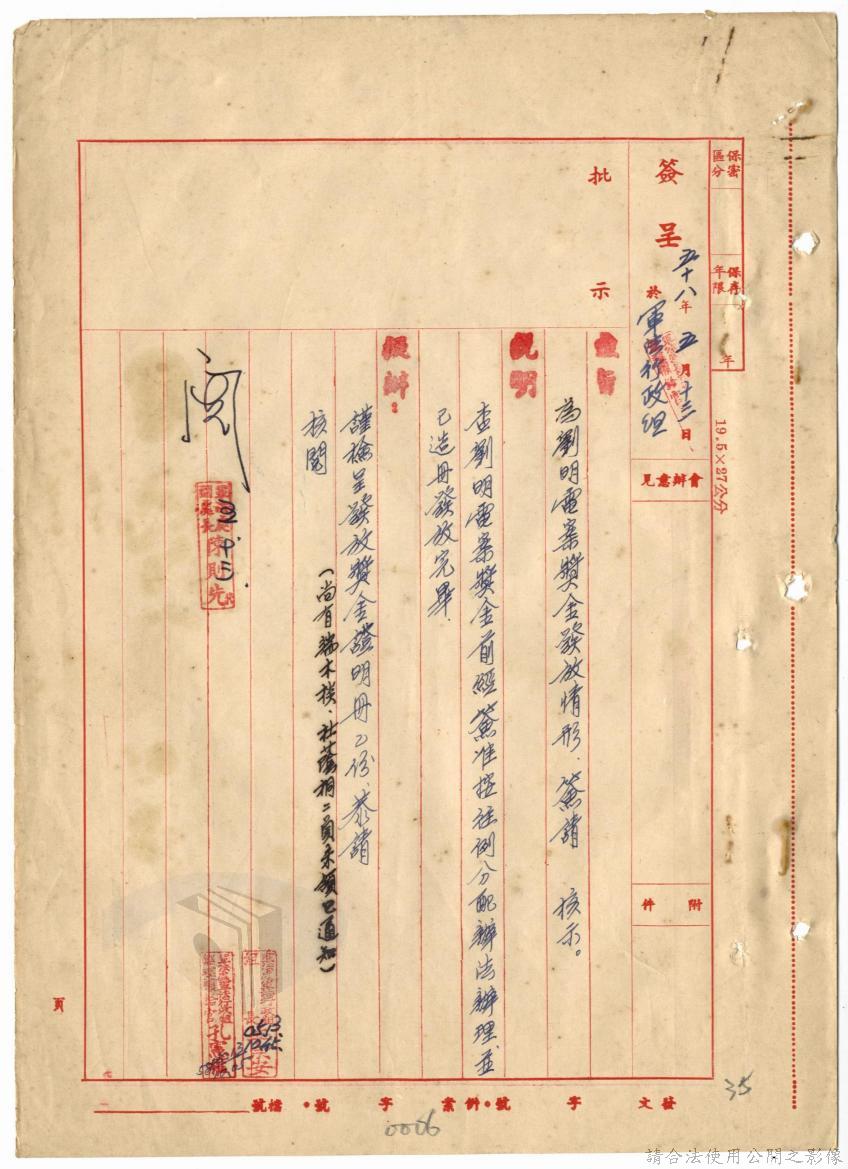 保密區分
保存年限
年
19.5×27公分
簽呈
五十八年五月十三日
於軍法行政組
會辦意見
附件
批示
主旨
為劉明電案獎金發放情形、簽請 核示。
說明
查劉明電案獎金前經簽准按往例分配辦法辦理並
已造冊發放完畢、
擬辦：
謹檢呈發放獎金證明冊乙份、恭請
核閱
(尚有端木棪、杜蔭桐二員未領已通知)
閱
陳則先
組長
0513
1045
頁
發文 字 號。附案 字 號。檔號
0006
35
請合法使用公開之影像